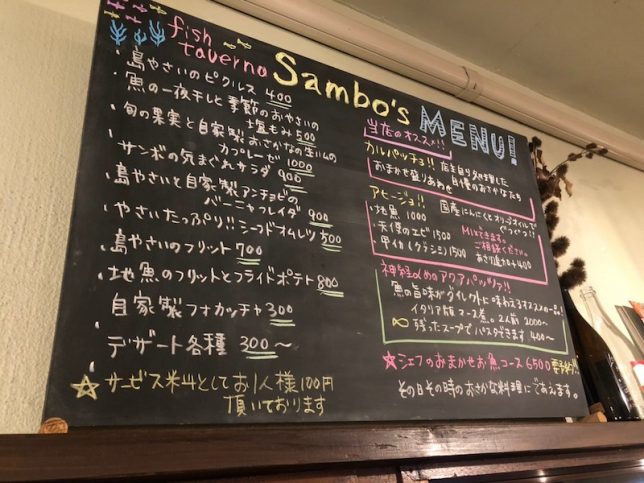 fish
taverna
Sambo's
MENU!
・島やさいのピクルス 400
・魚の一夜干しと季節のおやさいの
塩もみ 500
・旬の果実と自家製おさかなの生ハムの
カプレーゼ 1000
・サンボの気まぐれサラダ 900
・島やさいと自家製アンチョビの
バーニャフレイダ 900
・やさいたっぷり!!シーフードオムレツ 500
・島やさいのフリット 700
・地魚のフリットとフライドポテト 800
・自家製フォカッチャ 300
・デザート各種 300〜
☆サービス料としてお1人様100円
頂いております
当店のオススメ!!
カルパッチョ!! 店主自ら処理した
おまかせ盛りあわせ 自慢のおさかなたち
アヒージョ!! 国産にんにくとオリーブオイルで
ぐつぐつ!!
・地魚 1000
・天使のエビ 1500
・甲イカ(クラシミ) 1500
MIXできます。
ご相談ください。
あさり追加+400
神経〆めのアクアパッツァ!!
魚の旨味がダイレクトに味わえますオススメの一品!
イタリア版マース煮。2人前 2000〜
残ったスープでパスタできます 400〜
☆シェフのおまかせお魚コース 6500 要予約!!
その日その時のおさかな料理にであえます。